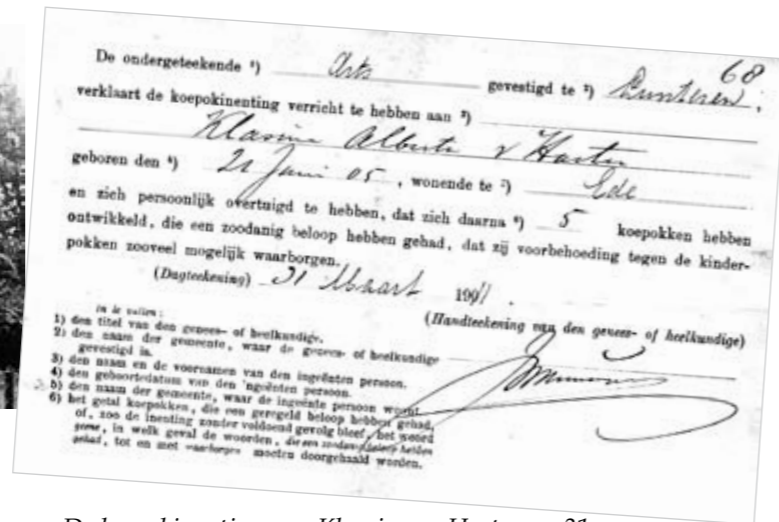 68
De ondergeteekende ¹) Arts gevestigd te ²) Lunteren.
verklaart de koepokinenting verricht te hebben aan ³)
Klasina Alberta v Harten
geboren den ⁴) 21 Juni 05, wonende te ⁵) Ede
en zich persoonlijk overtuigd te hebben, dat zich daarna ⁶) 5 koepokken hebben
ontwikkeld, die een zoodanig beloop hebben gehad, dat zij voorbehoeding tegen de kinder-
pokken zooveel mogelijk waarborgen.
(Dagteekening) 31 Maart 1911.
(Handteekening van den genees- of heelkundige)
in te vullen:
1) den titel van den genees- of heelkundige.
2) den naam der gemeente, waar de genees- of heelkundige
gevestigd is.
3) den naam en de voornamen van den ingeënten persoon.
4) den geboortedatum van den ingeënten persoon.
5) den naam der gemeente, waar de ingeënte persoon woont.
6) het getal koepokken, die een geregeld beloop hebben gehad,
of, zoo de inenting zonder voldoend gevolg bleef, het woord
geene, in welk geval de woorden, die een zoodanig beloop hebben
gehad, tot en met waarborgen moeten doorgehaald worden.